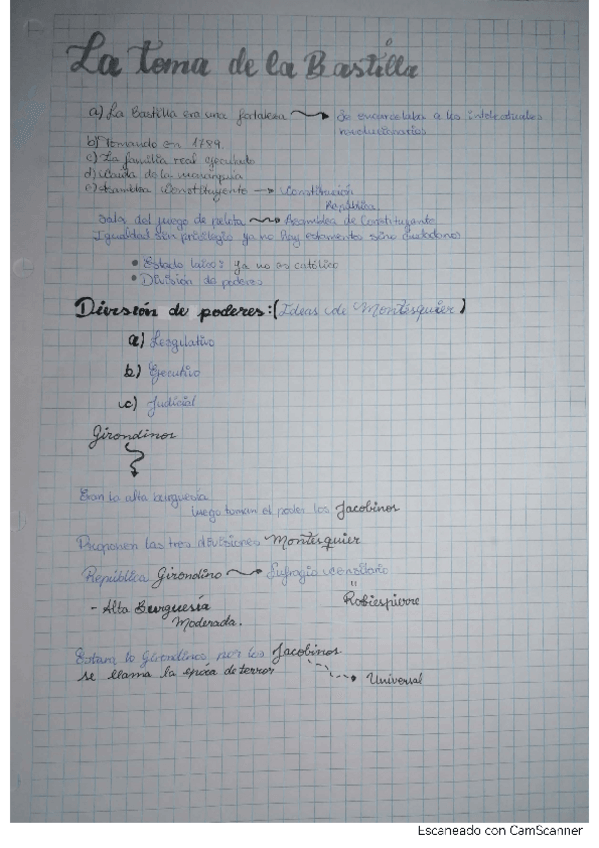 La toma de la Bastilla
a) La Bastilla era una fortaleza → Se encarcelaba a los intelectuales
revolucionarios
b) Tomando en 1789.
c) La familia real ejecutado
d) Caida de la monarquia
e) Asamblea Constituyente → Constitución
República.
Sala del juego de pelota → Asamblea de Constituyente
Igualdad sin privilegio ya no hay estamentos sino ciudadanos
• Estado laico: ya no es católico
• División de poderes
División de poderes: (Ideas de Montesquier)
a) Legislativo
b) Ejecutivo
c) Judicial
Girondinos
Eran la alta burguesía
luego toman el poder los Jacobinos
Proponen las tres divisiones Montesquier
República Girondino → Sufragio censitario
"
- Alta Burguesía Robiespierre
Moderada.
lo Girondinos por los Jacobinos
se llama la epoca de terror → Universal
Escaneado con CamScanner